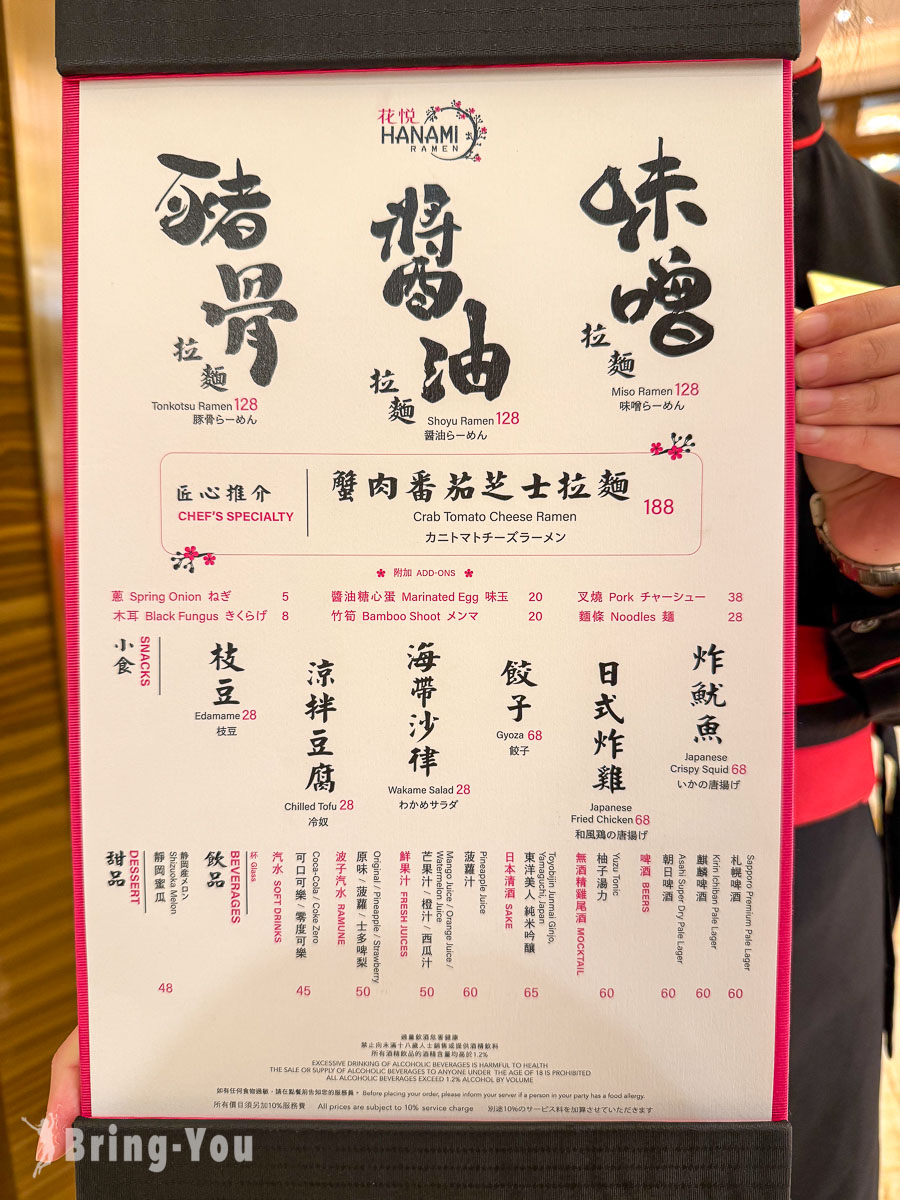 花悦
HANAMI
RAMEN
豬骨
拉麵
Tonkotsu Ramen 128
豚骨らーめん
醬油
拉麵
Shoyu Ramen 128
醤油らーめん
味噌
拉麵
Miso Ramen 128
味噌らーめん
匠心推介
CHEF'S SPECIALTY
蟹肉番茄芝士拉麵
Crab Tomato Cheese Ramen
カニトマトチーズラーメン
188
附加 ADD-ONS
蔥 Spring Onion ねぎ 5
醬油糖心蛋 Marinated Egg 味玉 20
叉燒 Pork チャーシュー 38
木耳 Black Fungus きくらげ 8
竹筍 Bamboo Shoot メンマ 20
麵條 Noodles 麺 28
SNACKS
小食
枝豆
Edamame 28
枝豆
涼拌豆腐
Chilled Tofu 28
冷奴
海帶沙律
Wakame Salad 28
わかめサラダ
餃子
Gyoza 68
餃子
日式炸雞
Japanese
Fried Chicken 68
和風鶏の唐揚げ
炸魷魚
Japanese
Crispy Squid 68
いかの唐揚げ
DESSERT
甜品
静岡産メロン
Shizuoka Melon
靜岡蜜瓜
48
杯 Glass
BEVERAGES
飲品
汽水 SOFT DRINKS
Coca-Cola / Coke Zero
可口可樂 / 零度可樂
45
波子汽水 RAMUNE
Original / Pineapple / Strawberry
原味 / 菠蘿 / 士多啤梨
50
鮮果汁 FRESH JUICES
Mango Juice / Orange Juice /
Watermelon Juice
芒果汁 / 橙汁 / 西瓜汁
50
Pineapple Juice
菠蘿汁
60
日本清酒 SAKE
Toyobijin Junmai Ginjo,
Yamaguchi, Japan
東洋美人 純米吟釀
65
無酒精雞尾酒 MOCKTAIL
Yuzu Tonic
柚子湯力
60
啤酒 BEERS
Asahi Super Dry Pale Lager
朝日啤酒
60
Kirin Ichiban Pale Lager
麒麟啤酒
60
Sapporo Premium Pale Lager
札幌啤酒
60
過量飲酒危害健康
禁止向未滿十八歲人士銷售或提供酒精飲料
所有酒精飲品的酒精含量均高於1.2%
EXCESSIVE DRINKING OF ALCOHOLIC BEVERAGES IS HARMFUL TO HEALTH
THE SALE OR SUPPLY OF ALCOHOLIC BEVERAGES TO ANYONE UNDER THE AGE OF 18 IS PROHIBITED
ALL ALCOHOLIC BEVERAGES EXCEED 1.2% ALCOHOL BY VOLUME
如有任何食物過敏，請在點餐前告知您的服務員。 Before placing your order, please inform your server if a person in your party has a food allergy.
所有價目須另加10%服務費 All prices are subject to 10% service charge 別途10%のサービス料を加算させていただきます
Bring-You